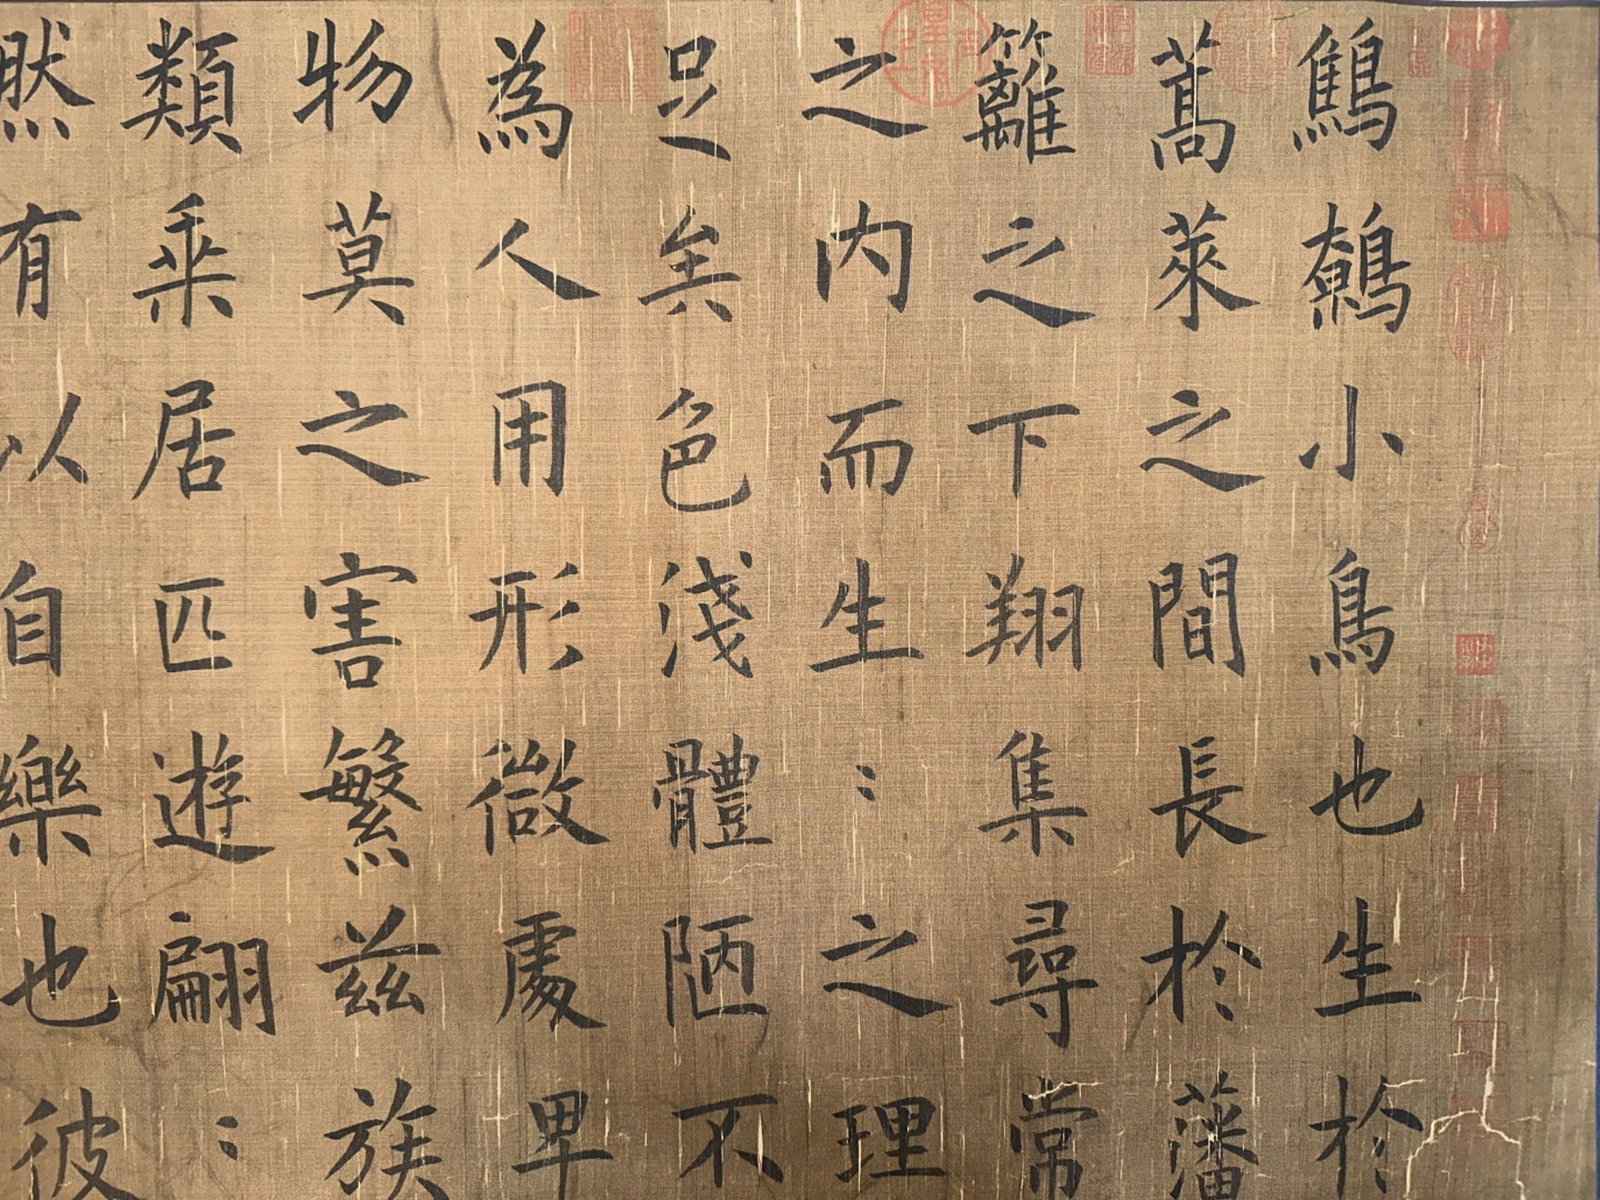 鷦鷯小鳥也生於
蒿萊之間長於藩
籬之下翔集尋常
之内而生〻之理
足矣色淺體陋不
為人用形微處卑
物莫之害繁兹族
類乗居匹遊翩〻
然有以自樂也彼